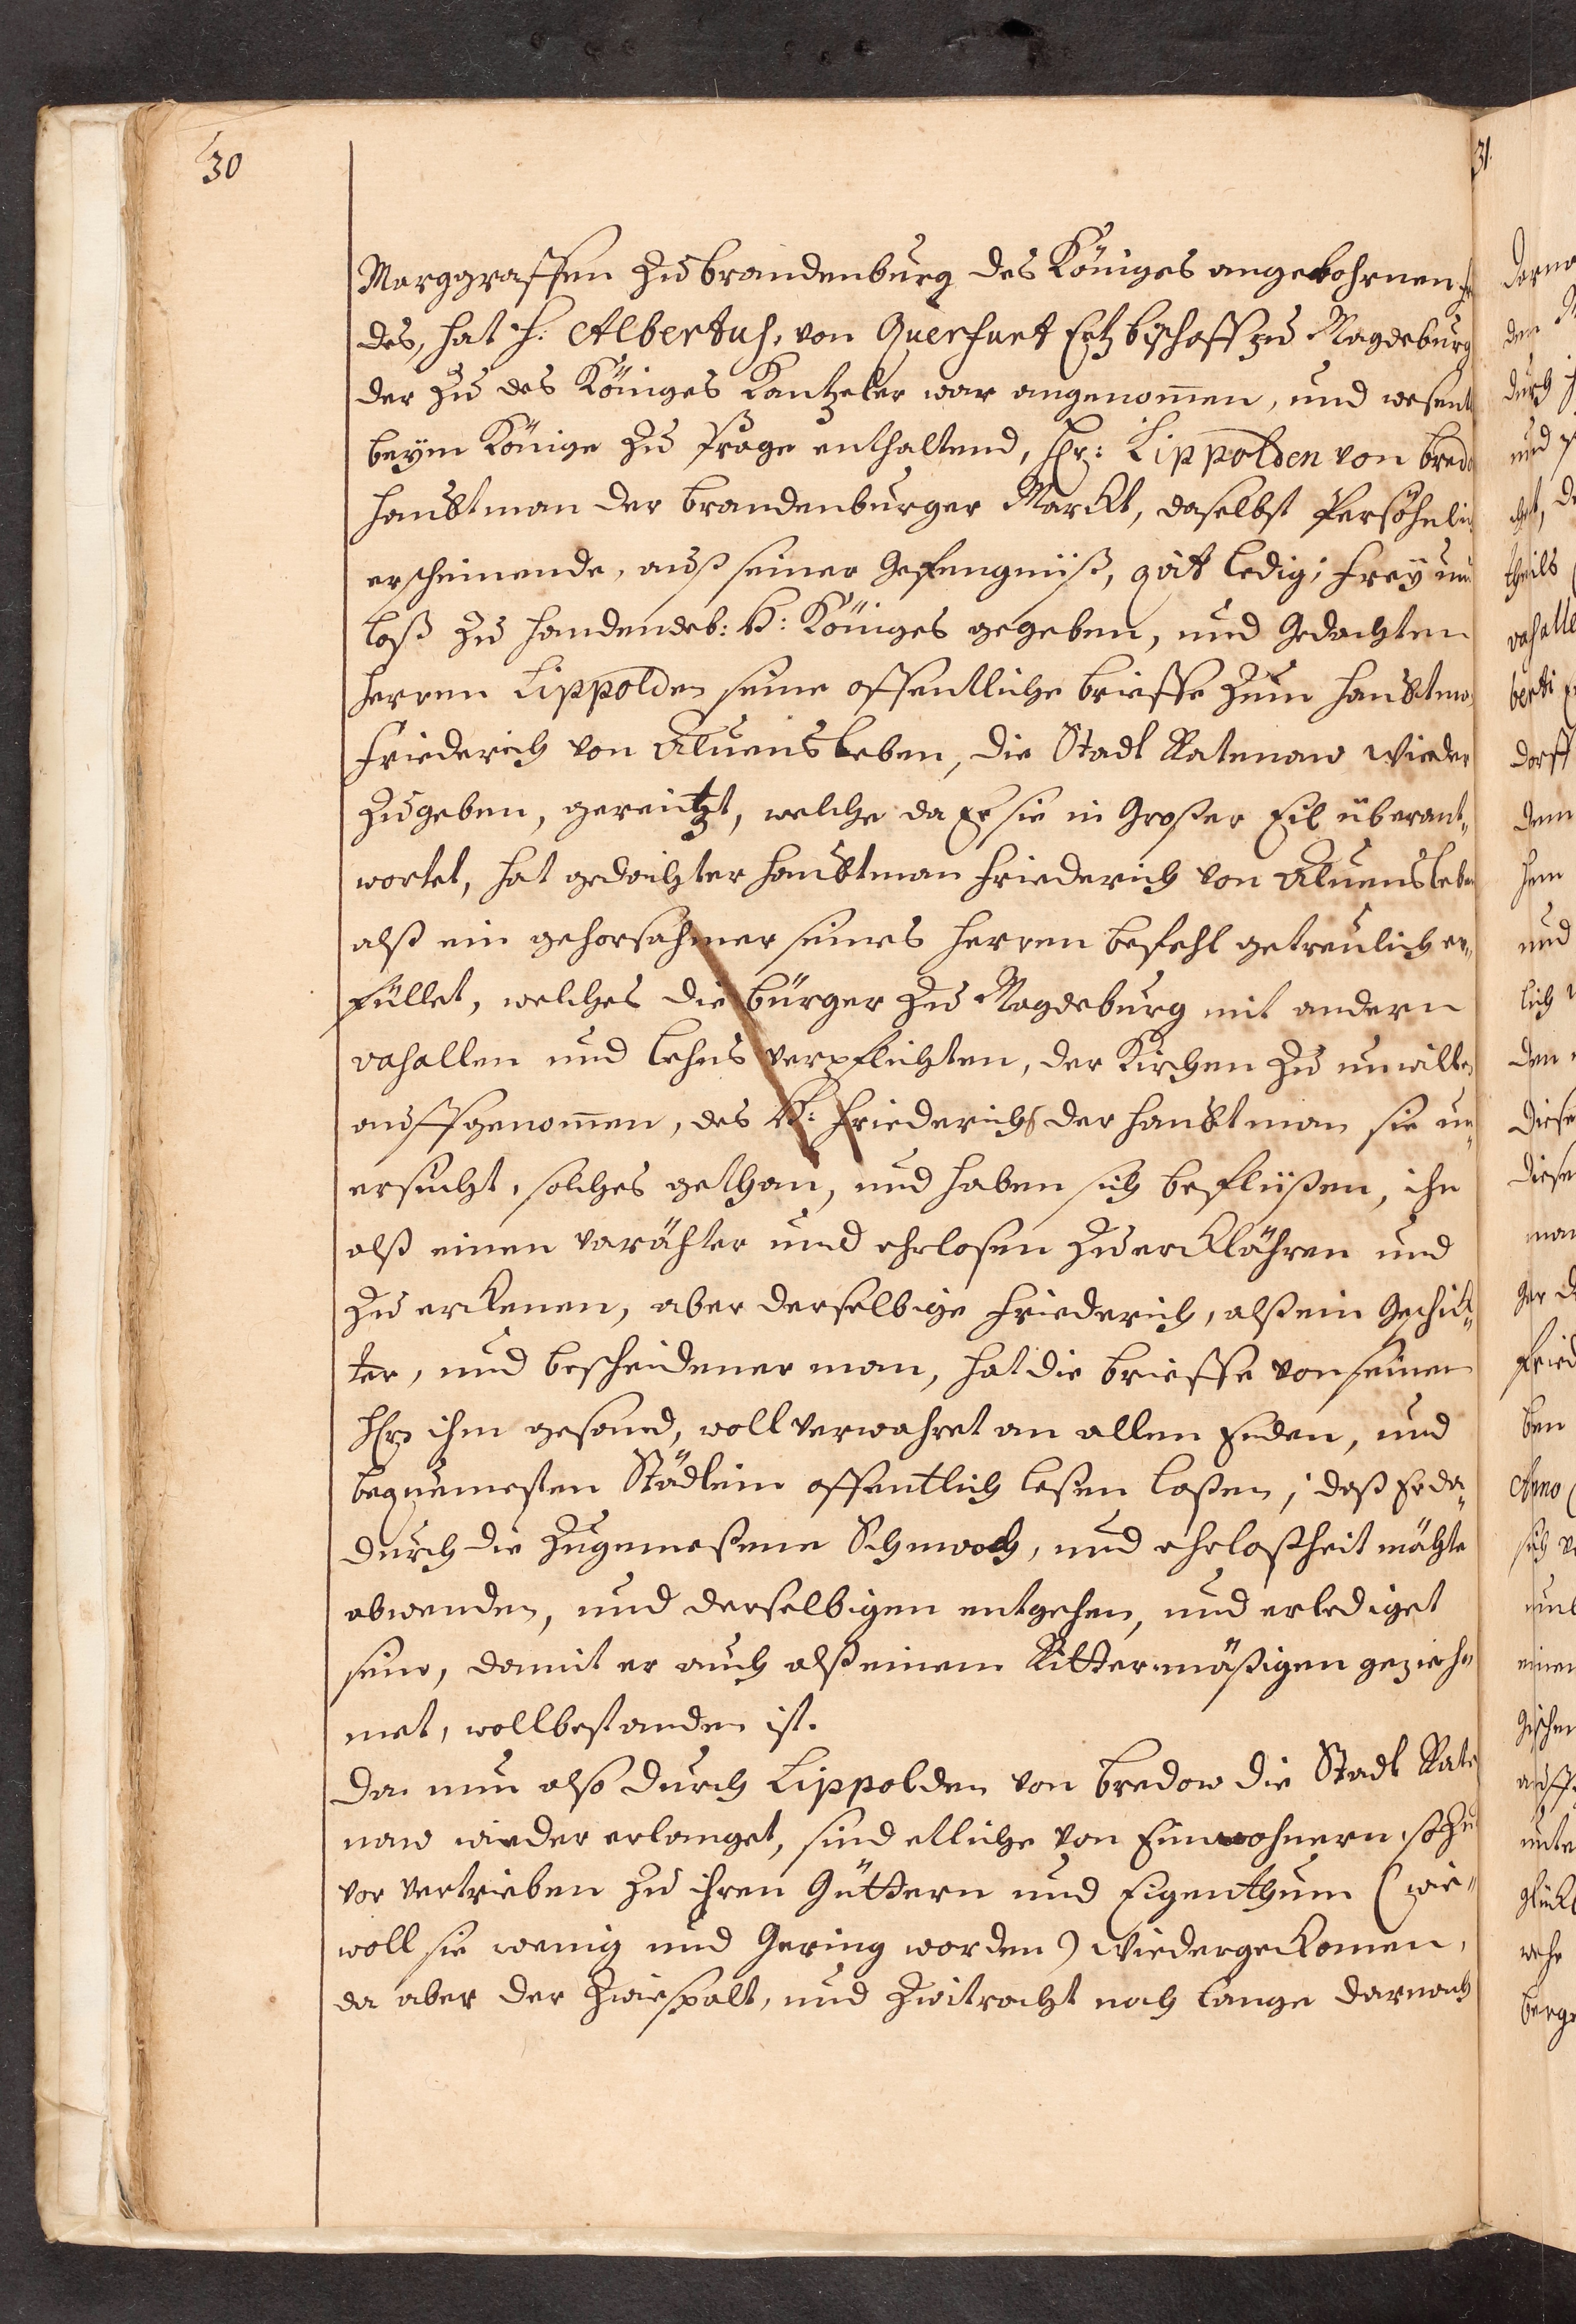 30
31.
Marggraffen zu brandenburg des Königes angebohrnen
des, hat H. Albertus, von Querfurt Ertzbischoff zu Magdeburg
der zu des Königes Cantzeler war angenom̅en, und wesent
beym Könige zu Prage enthaltend, Hr: Lippolden von bredo
Haubtman der brandenburger Marckt, daselbst Persöhnlich
erscheinende, auß seiner Gefengniß, qvit ledig, frey un
loß zu handen deb: K: Königes gegeben, und Gedachten
Herren Lippolden seine offentliche brieffe zum Haubtma
Friederich von Aluensleben, die Stadt Ratenaw wieder
zugeben, gereitzt, welche da Er sie in Großer Eil überant„
wortet, hat gedachter Haubtman Friederich von Aluensleben
alß ein gehorsahmer seines Herren befehl getreulich er„
füllet, welches die bürger zu Magdeburg mit andern
vasallen und lehns verpflichten, der Kirchen zu unwillen
auffgenom̅en, des K: Friederichs der Haubtman sie un„
ersucht, solches gethan, und haben sich befließen, ihn
alß einen verähter und ehrlosen zu erklähren und
zu erkenen, aber derselbige Friederich, alß ein Geschick„
ter, und bescheidener man, hat die brieffe von seinem
Hrn ihm gesand, woll verwahret an allen Enden, und
beqvemesten Städlein offentlich leßen laßen, daß Er da„
durch die zugemeßene Schmach, und ehrloßheit mähte
abwenden, und derselbigen entgehen, und erlediget
sein, damit er auch alß einem Rittermäßigen gezieh„
met, woll bestanden ist.
Da nun also durch Lippolden von bredow die Stadt Rate
naw wieder erlanget, sind etliche von Einwohnern so zu
vor vertrieben zu ihren Güttern und Eigenthum (wie„
woll sie wenig und Gering worden) wiedergekomen,
da aber der Zwiespalt, und Zwitracht noch lange darnach